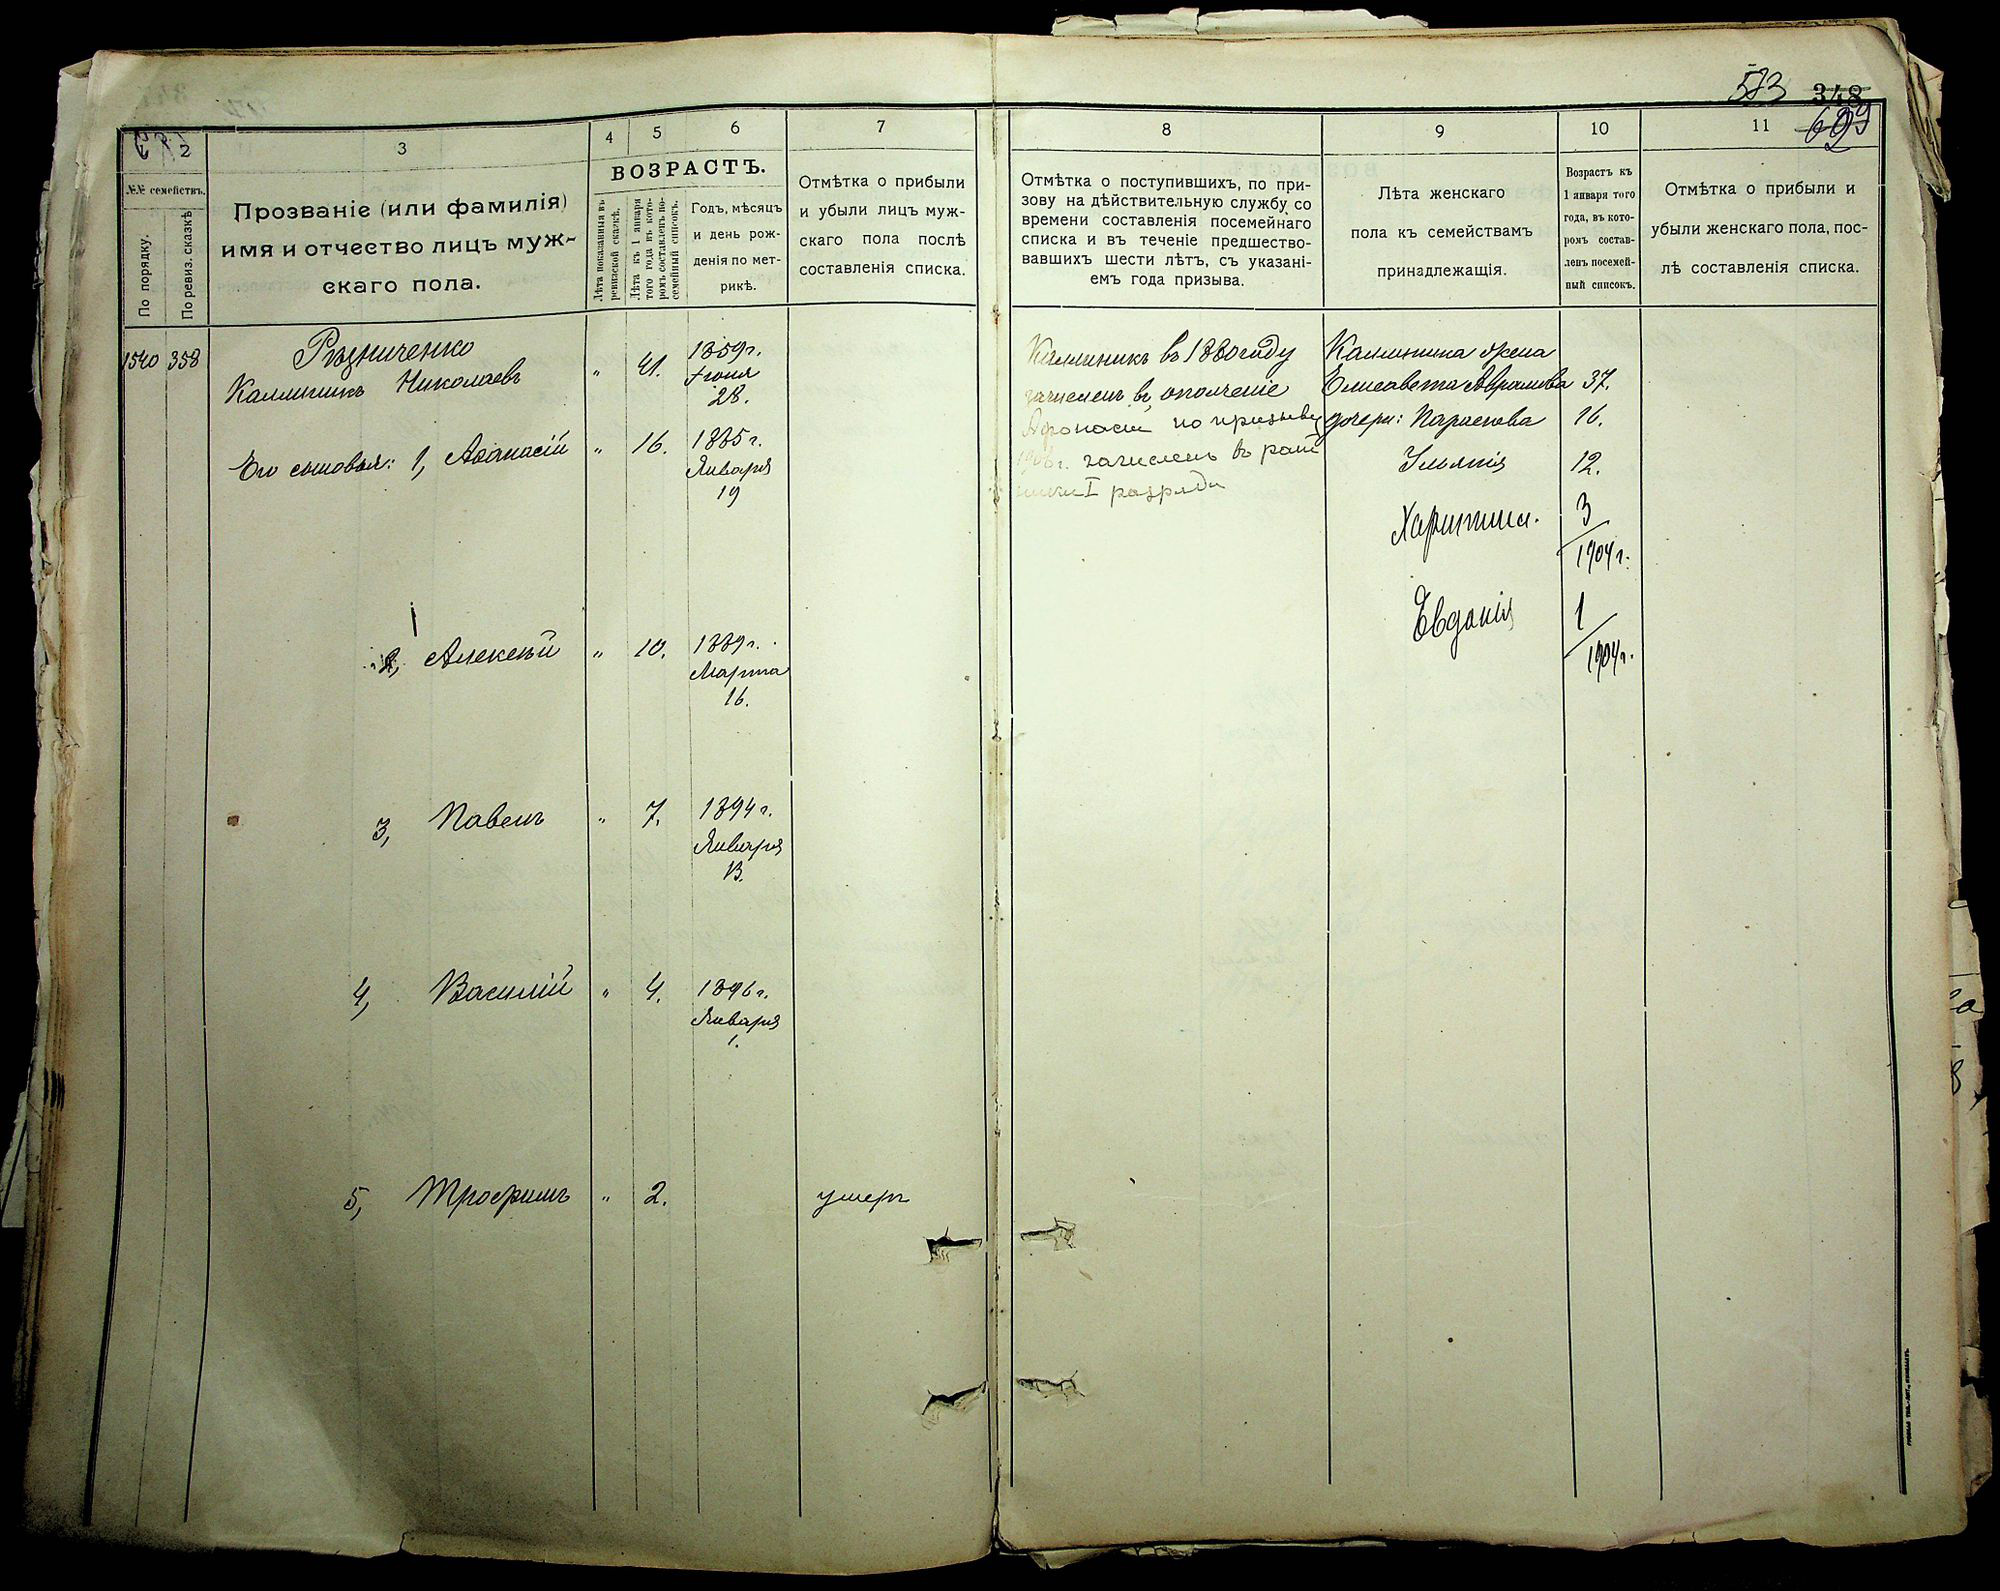 583 348
629
2
3
4
5
6
7
8
9
10
11
№№ семействъ.
По порядку.
По ревиз. сказкѣ
Прозваніе (или фамилія)
имя и отчество лицъ муж-
скаго пола.
ВОЗРАСТЪ.
Лѣта показанныя въ
ревизской сказкѣ.
Лѣта къ 1 января
того года въ кото-
ромъ составленъ по-
семейный списокъ.
Годъ, мѣсяцъ
и день рож-
денія по мет-
рикѣ.
Отмѣтка о прибыли
и убыли лицъ муж-
скаго пола послѣ
составленія списка.
Отмѣтка о поступившихъ, по при-
зову на дѣйствительную службу со
времени составленія посемейнаго
списка и въ теченіе предшество-
вавшихъ шести лѣтъ, съ указані-
емъ года призыва.
Лѣта женскаго
пола къ семействамъ
принадлежащія.
Возрастъ къ
1 января того
года, въ кото-
ромъ состав-
ленъ посемей-
ный списокъ.
Отмѣтка о прибыли и
убыли женскаго пола, пос-
лѣ составленія списка.
1540 358 Рѣзниченко
Каллиникъ Николаевъ " 41. 1859 г.
Іюня
28.
Его сыновья: 1, Аѳанасій " 16. 1885 г.
Января
19
2, Алексѣй " 10. 1889 г.
Марта
16.
3, Павелъ " 7. 1894 г.
Января
13.
4, Василій " 4. 1896 г.
Января
1.
5, Трофимъ " 2. умеръ
Каллиникъ въ 1880 году
зачисленъ въ ополченіе
Афонасій по призыву
1906 г. зачисленъ в рат
ники I разряда
Каллиника жена
Елисавета Аврамова 37.
дочери: Параскева 16.
Ульянія 12.
Харитина. 3
1904 г.
Евдокія 1
1904 г.